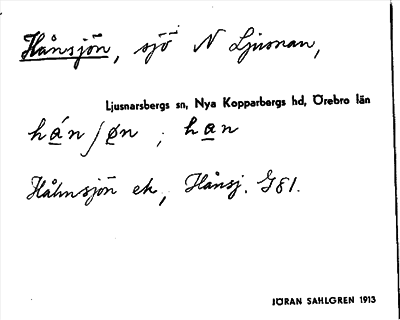 Hånsjön, sjö N Ljusnan,
Ljusnarsbergs sn, Nya Kopparbergs hd, Örebro län
hán/øn ; han
Håhnsjön ek, Hånsj. G81.
JÖRAN SAHLGREN 1913